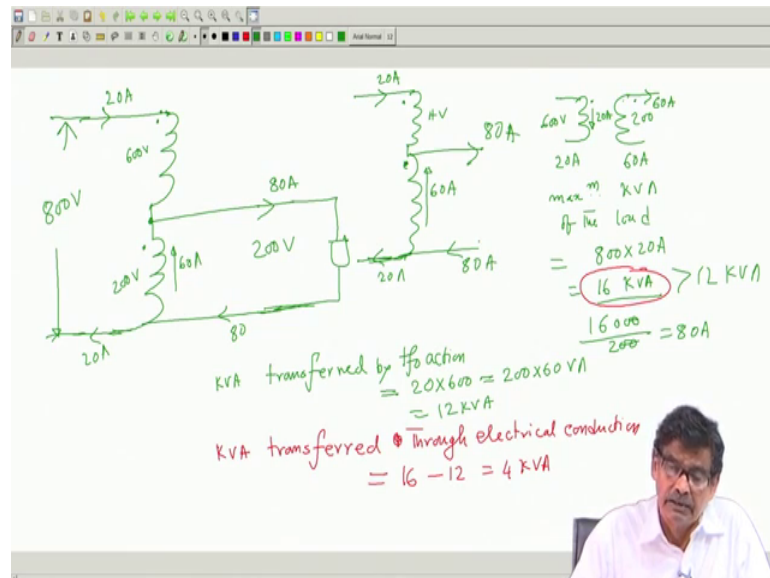 Arial Normal 12
20A
600V
800V
80A
200V
60A
200V
80
20A
20A
HV
80A
60A
20A
80A
600V
20A
200
60A
20A
60A
max m KVA
of The load
= 800 x 20A
= 16 KVA > 12 KVA
16000
200
= 80A
KVA transferred by tfo action
= 20 x 600 = 200 x 60 VA
= 12 KVA
KVA transferred Through electrical conduction
= 16 - 12 = 4 KVA